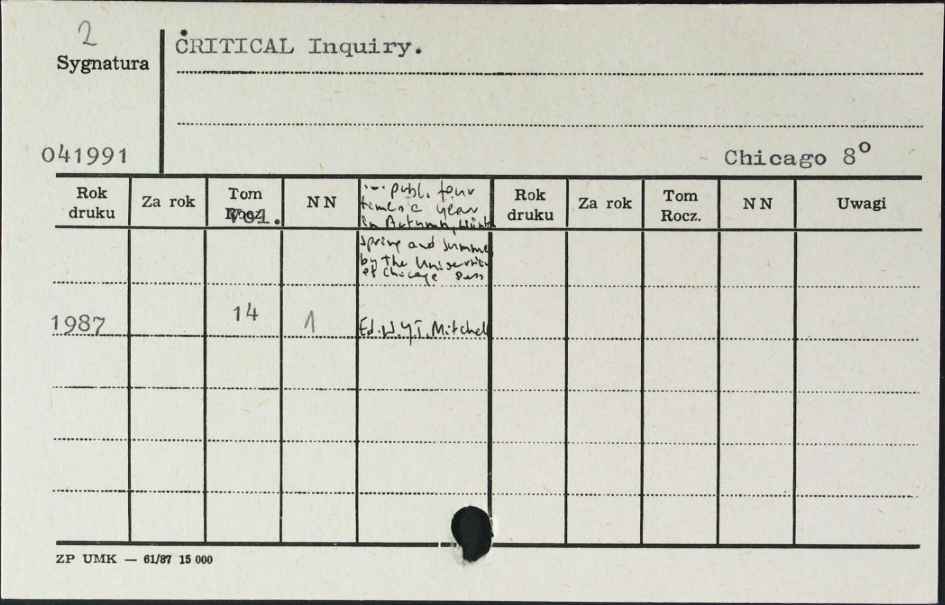 2
Sygnatura
CRITICAL Inquiry.
041991
Chicago 8º
Rok druku
Za rok
Tom
Vol.
N N
... publ. four
times a year
in Autumn, Wint
Spring and Summe
by the Universit
of Chicago Press
Rok druku
Za rok
Tom Rocz.
N N
Uwagi
1987
14
1
Ed. W.Y.T. Mitchel
ZP UMK — 61/87 15 000